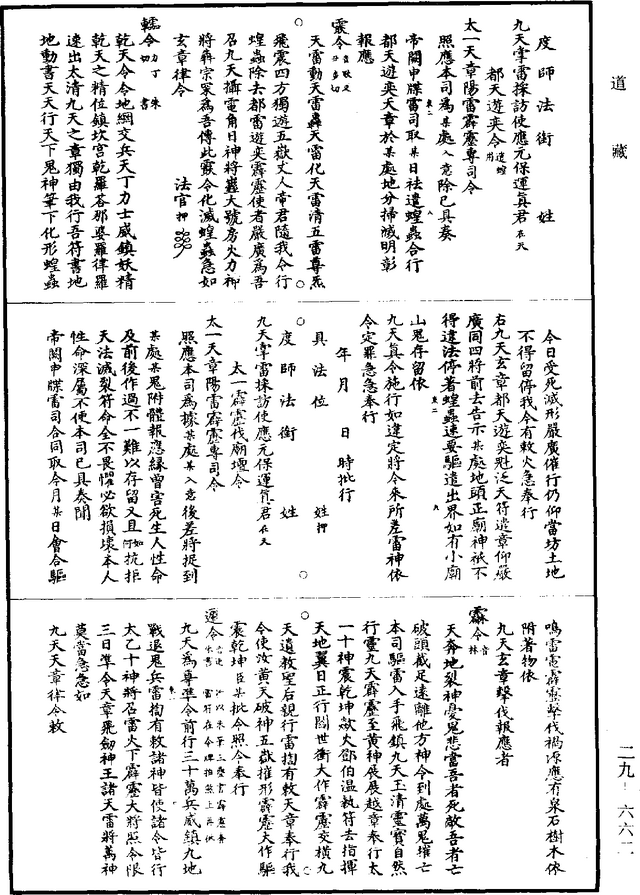 道藏
度師法銜　姓
九天掌雷採訪使應元保運真君在天
都天遊奕令遣蝗用
太一天章陽雷霹靂專司令
照應本司為某處人意除已具奏
帝闕申牒雷司取某日祛遣蝗蟲合行
都天遊奕天章於某處地分掃滅明彰
報應
天雷動天雷轟天雷化天雷清五雷尊炁
飛震四方獨遊五嶽丈人帝君隨我令行
蝗蟲除去都雷遊奕霹靂使者嚴廣為吾
召九天攝電角日神將巖大號房火力神
將犇宗眾為吾傳此靈令化滅蝗蟲急如
玄章律令　法官押
乾天令令地網交兵天丁力士威鎮妖精
乾天之精位鎮坎宮乾羅荅那婆羅律羅
速出太清九天之章獨由我行吾符書地
地動書天天行天下鬼神筆下化形蝗蟲
今日受死滅形嚴廣催行仍仰當坊土地
不得留停我今有敕火急奉行
右九天玄章都天遊奕尅泛天符遣章仰嚴
廣同四將前去告示某處地頭正廟神祇不
得違法停著蝗蟲速要驅遣出界如有小廟
山鬼存留依
九天真令施行如違定將令來所差雷神依
令定罪急急奉行
年　月　日　時批行
具法位　姓押
度師法銜　姓
九天掌雷採訪使應元保運真君在天
太一霹靂伐廟壇令
太一天章陽雷霹靂專司令
照應本司為據某處某人意後差將捉到
某處某鬼附體報應緣曾害死生人性命
及前後作過不一難以存留又且如何抗拒
天法滅裂符命全不畏懼必欲損壞本人
性命深屬不便本司已具奏聞
帝闕申牒雷司合同取今月某日會合驅
鳴雷電霹靂擊伐禍源應有泉石樹木依
附著物依
九天玄章擊伐報應者
天奔地裂神憂鬼悲當吾者死敵吾者亡
破頭截足遠離他方神令到處萬鬼摧亡
本司驅雷入手飛鎮九天玉清靈寶自然
行靈九天霹靂至黃神展展越章奉行太
一十神震乾坤歘火鄧伯溫執符去指揮
天地翼日正行閻世衝大作霹靂交橫九
天遣敎聖后親行雷㨄有敕天章奉行我
令使汝黃天破神五嶽摧形霹靂大作驅
震乾坤臣某批令照令奉行
九天為尊準令前行三十萬兵威鎮九地
戰退鬼兵雷㨄有敕諸神皆使諸令皆行
太乙十神將召雷火下霹靂大將照令限
三日準令天章飛劍神王諸天雷將萬神
莫當急急如
九天天章律令敕
二九－六六二